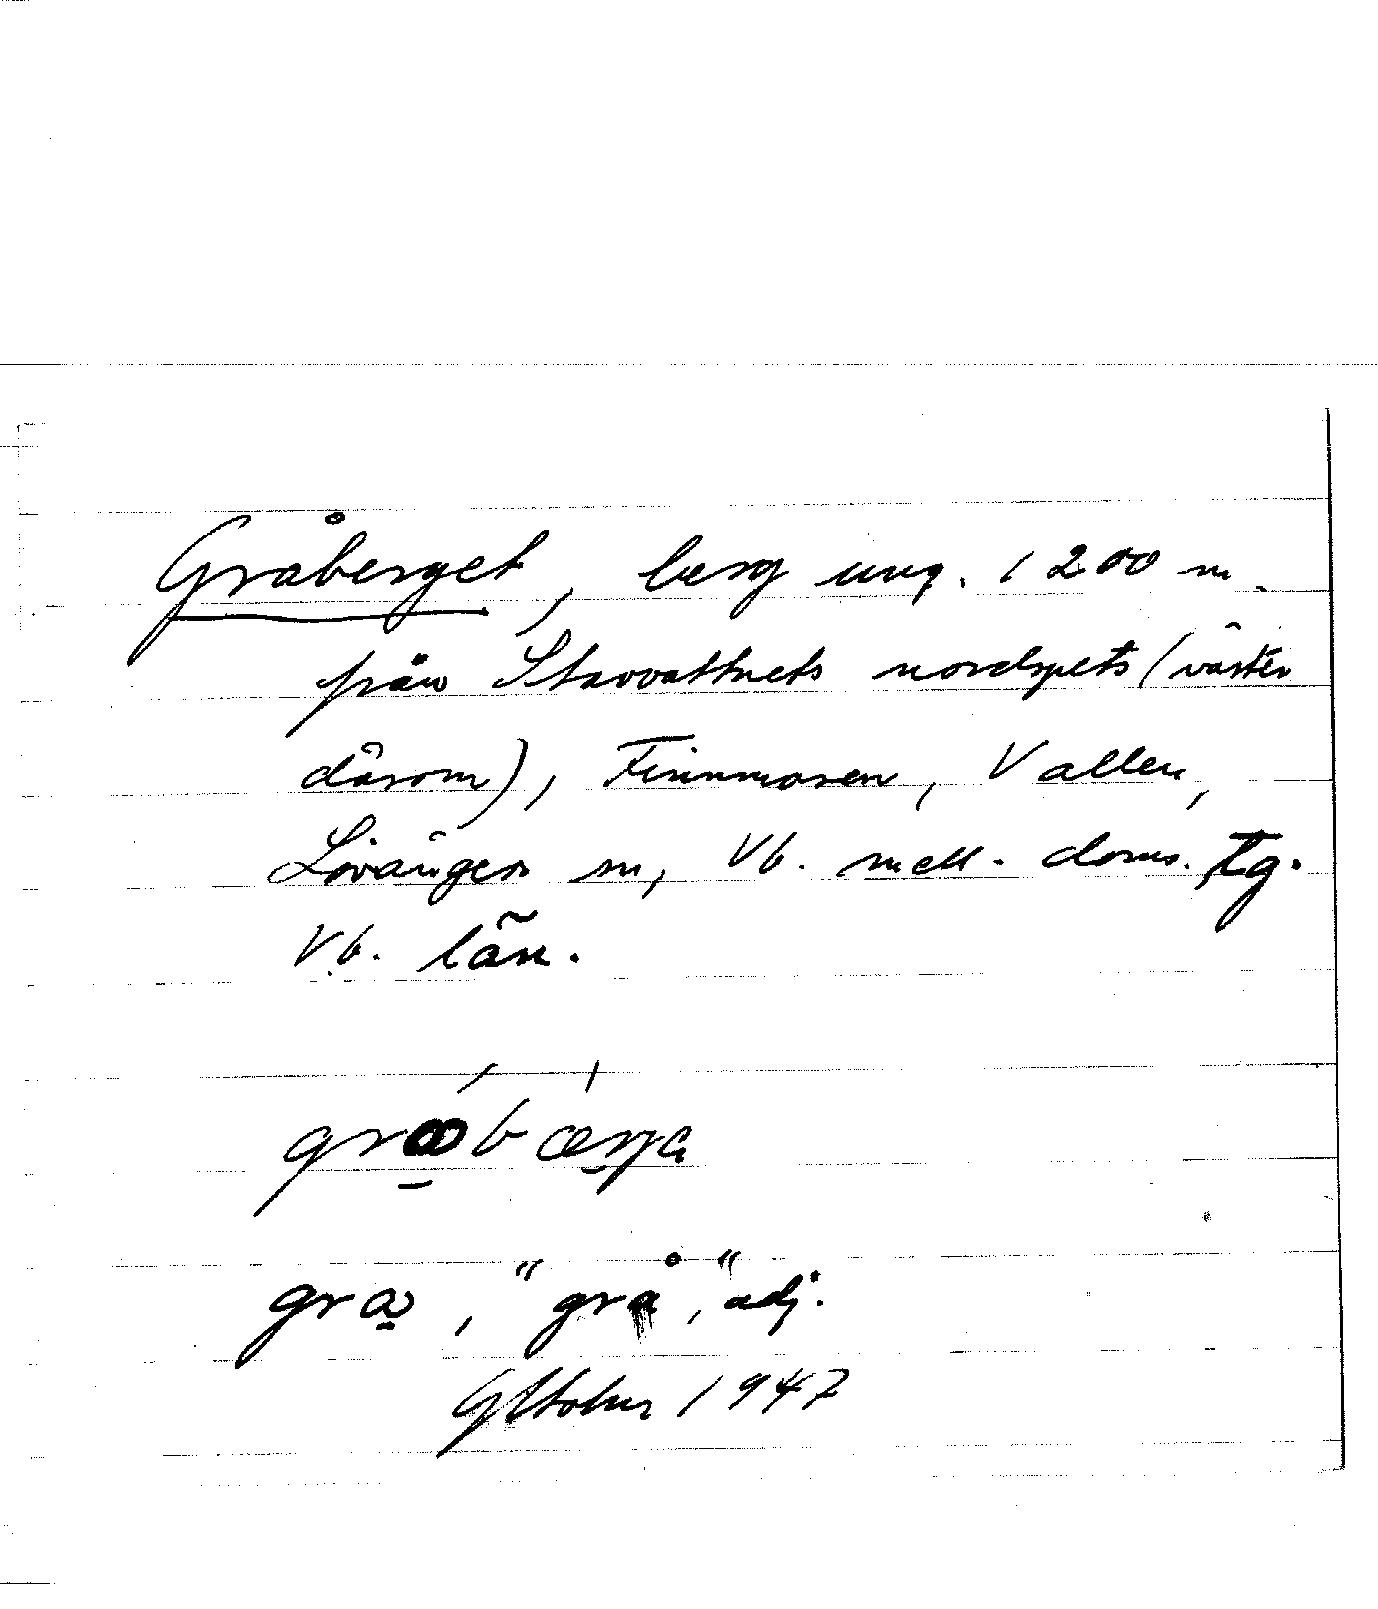 Gråberget, berg ung. 1200 m.
från Stavvattnets nordspets (väster
därom), Finnmoren, Vallen,
Lövånger sn, Vb. mell. doms. tg.
Vb. län.
gra , "grå", adj.
GHolm 1947